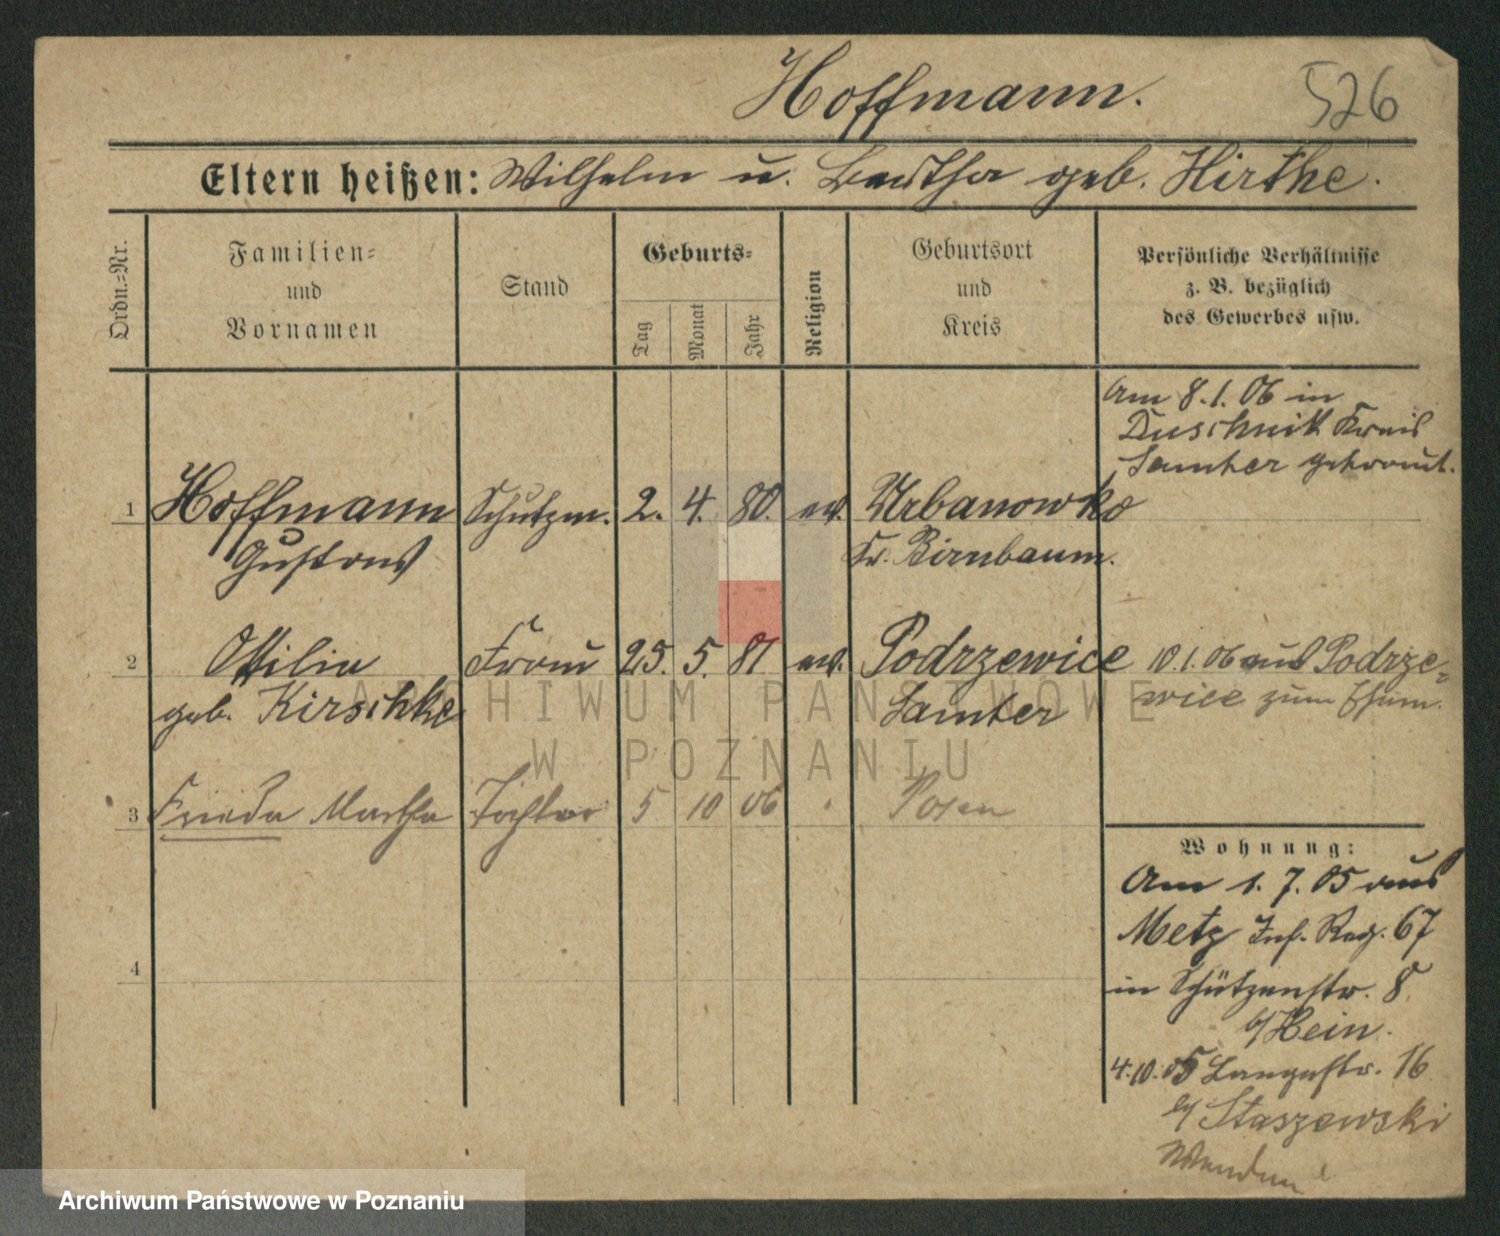 Hoffmann.
526
Eltern heißen: Wilhelm u. Bertha geb. Hirthe.
Ordn.-Nr.
Familien-
und
Vornamen
Stand
Geburts-
Tag
Monat
Jahr
Religion
Geburtsort
und
Kreis
Persönliche Verhältnisse
z. B. bezüglich
des Gewerbes usw.
Am 8.1.06 in
Duschnik Kreis
Samter getraut.
1 Hoffmann Schutzm. 2. 4. 80. ev. Urbanowko
Gustav Kr. Birnbaum.
2 Ottilie Frau 25. 5. 81 ev. Podrzewice 10.1.06 aus Podrze-
geb. Kirschke Samter wice zum Ehem.
3 Frieda Martha Tochter 5 10 06 Posen
Wohnung:
Am 1. 7. 05 aus
Metz Inf. Reg. 67
4
in Schützenstr. 8
b/ Hein.
4.10.05 Langestr. 16
b/ Staszewski
Wenden!
ARCHIWUM PAŃSTWOWE
W POZNANIU
Archiwum Państwowe w Poznaniu